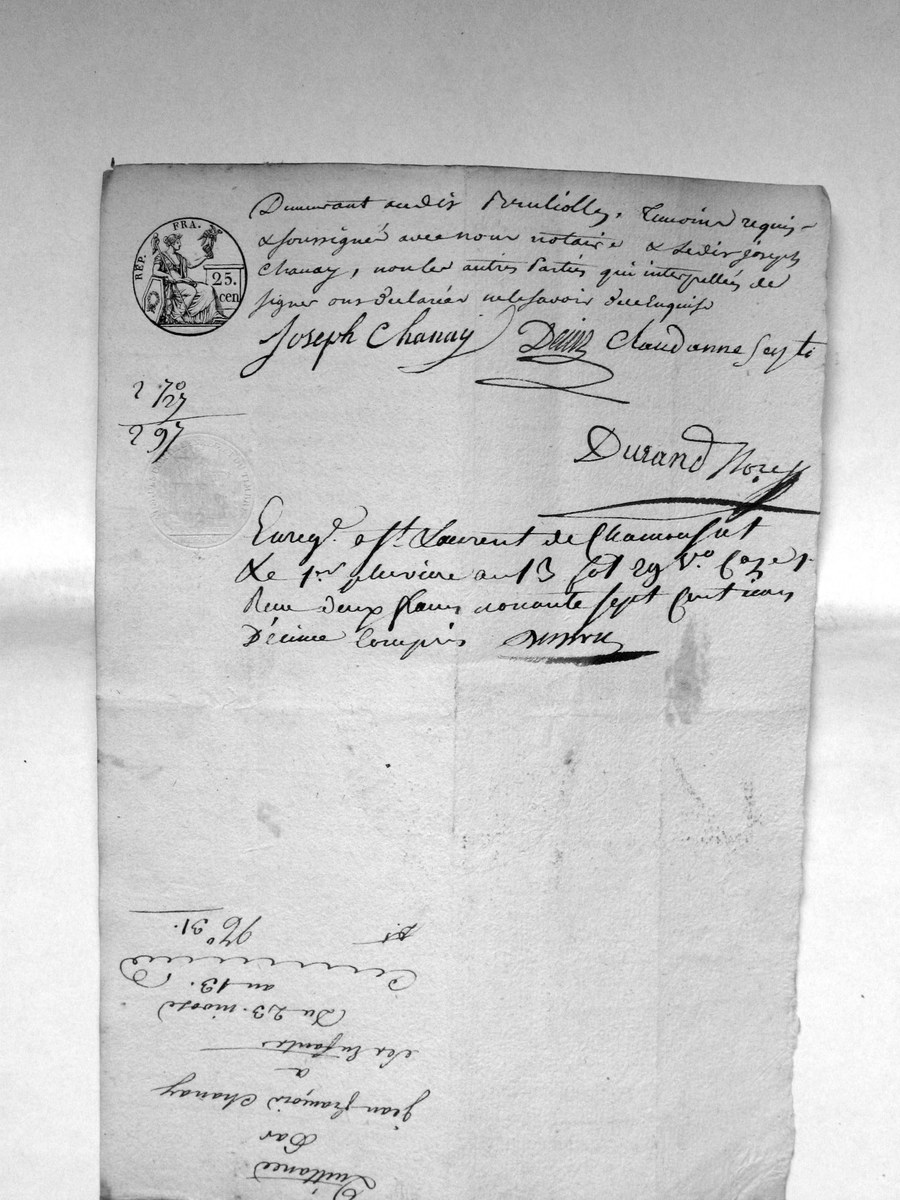 Demeurant audit Brulliolles, temoins requis
& soussignés avec nous notaire & ledit joseph
Chanay, non les autres Parties qui interpellés de
signer ont declarées ne le savoir de ce Enquise
RÉP. FRA.
25.
cen
Joseph Chanay Claudanne
2 70
27
2 97
Durand Nore
Enregé. a St. Laurent de Chamousset
Le 1er pluviose an 13 fol 29 Vo. Caze 1.
Reçu deux francs nonante sept Centimes
Décime Compris
Quittance
Par
jean françois Chanay
a
ses Enfants
Du 23. nivose
an 13.
No. 31.